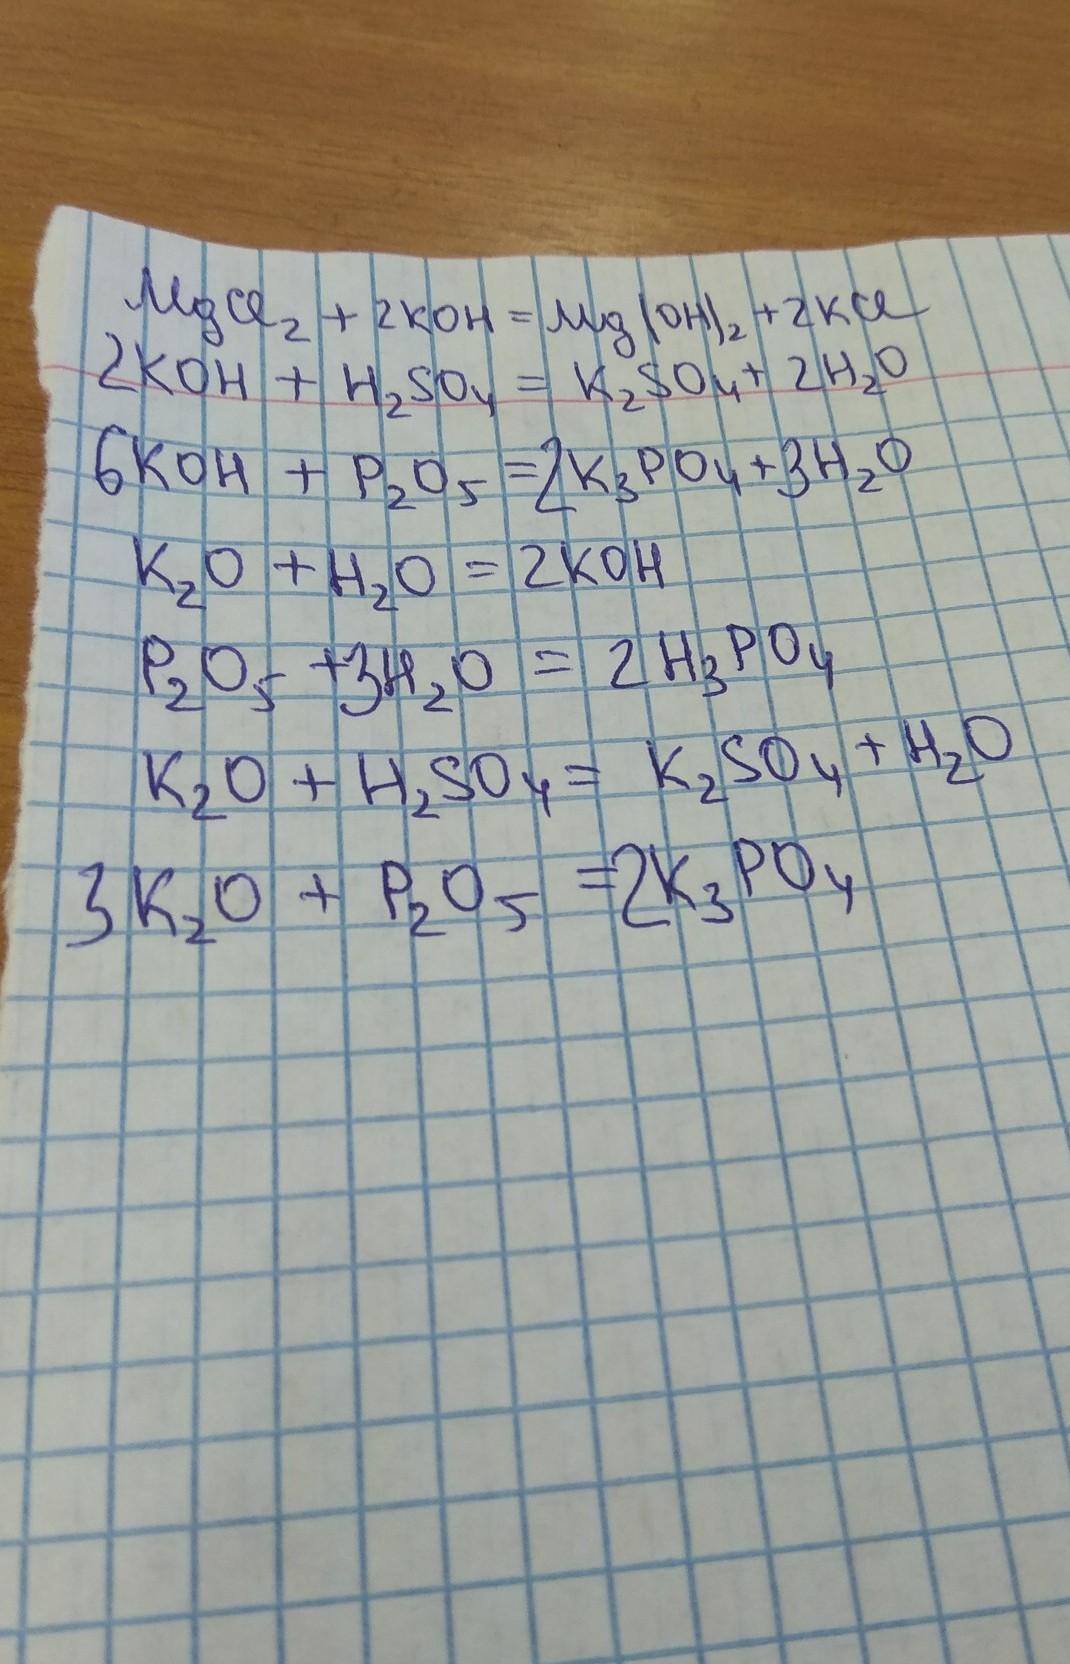 MgCl₂ + 2KOH = Mg(OH)₂ + 2KCl
2KOH + H₂SO₄ = K₂SO₄ + 2H₂O
6KOH + P₂O₅ = 2K₃PO₄ + 3H₂O
K₂O + H₂O = 2KOH
P₂O₅ + 3H₂O = 2H₃PO₄
K₂O + H₂SO₄ = K₂SO₄ + H₂O
3K₂O + P₂O₅ = 2K₃PO₄